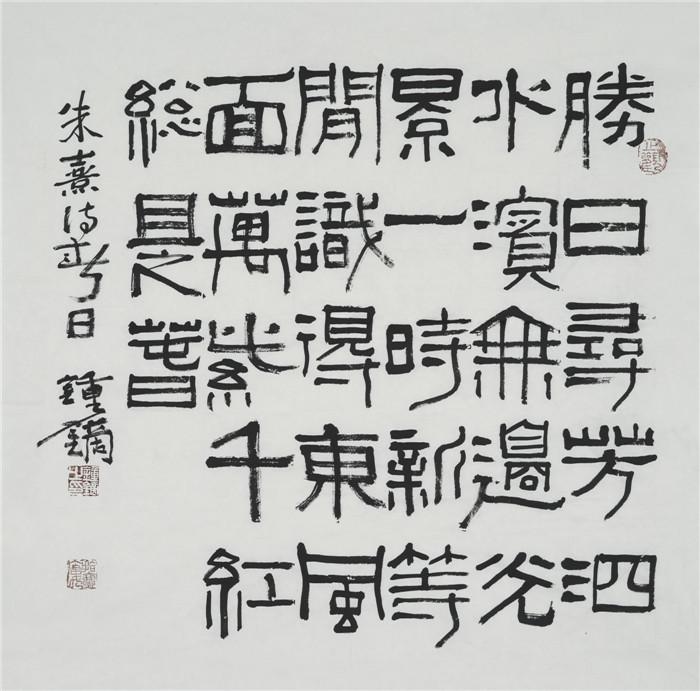 勝日尋芳泗
水濱無邊光
景一時新等
閒識得東風
面萬紫千紅
總是春
朱熹詩春日 鍾鏑